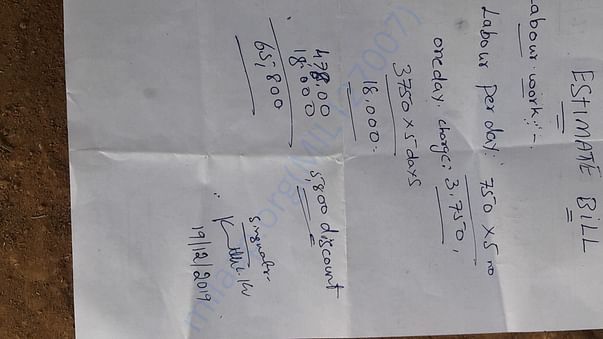 ESTIMATE BILL
Labour work:-
Labour per day: 750 x 5 no
oneday charge: 3,750,
3750 x 5 days
18,000.
478,00
18,000
65,800
5,800 discount
19/12/2019